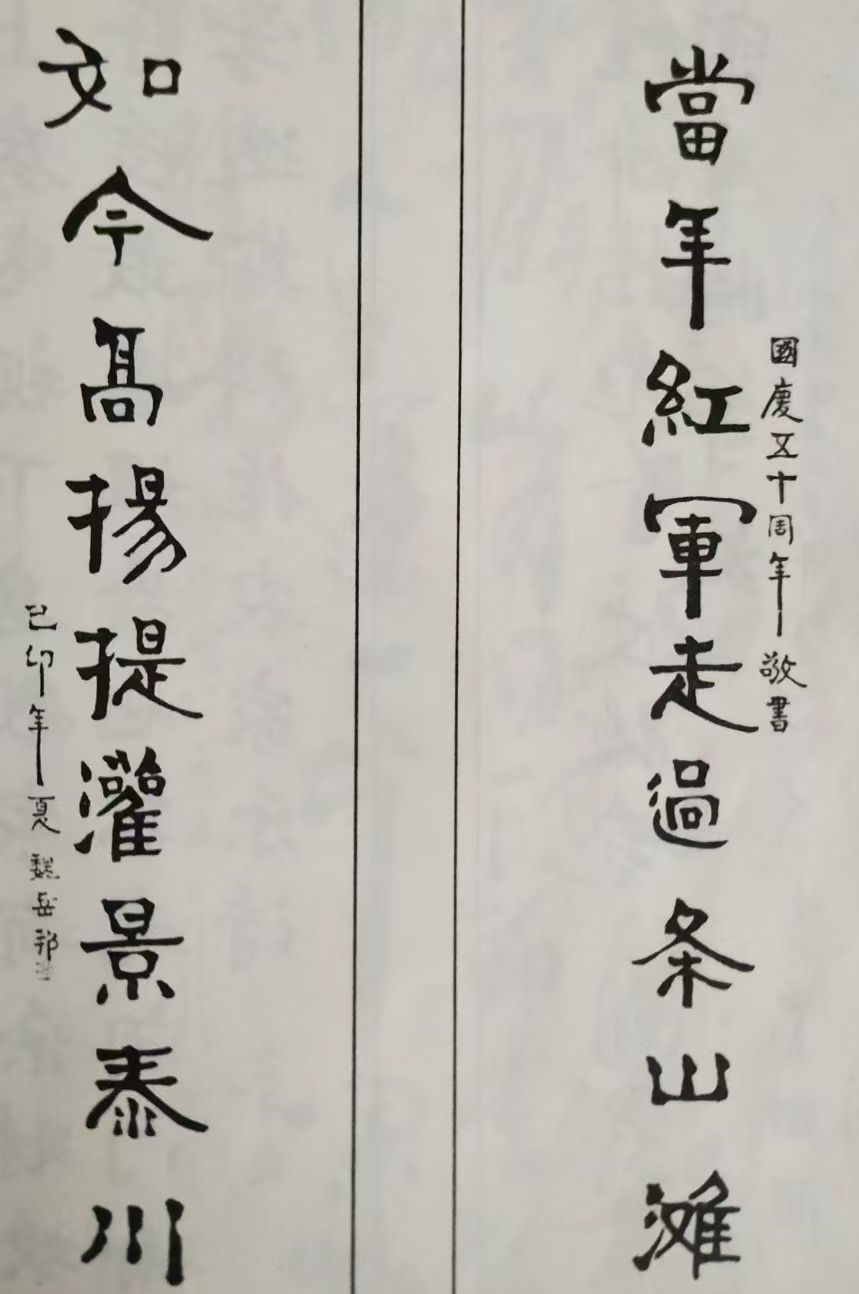 當年紅軍走過条山滩
國慶五十周年敬書
如今高揚提灌景泰川
己卯年夏魏岳邦